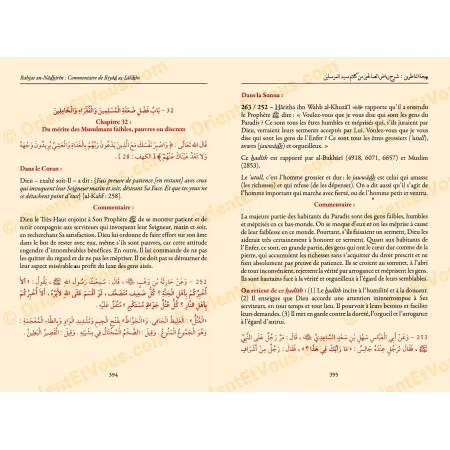 Bahjat an-Nâdhirîn : Commentaire de Riyâḍ aṣ-Ṣâliḥîn
32 - بَابُ فَضْلِ ضَعَفَةِ الْمُسْلِمِينَ وَالْفُقَرَاءِ وَالْخَامِلِينَ
Chapitre 32 :
Du mérite des Musulmans faibles, pauvres ou discrets
قَالَ اللهُ تَعَالَى : ﴿ وَاصْبِرْ نَفْسَكَ مَعَ الَّذِينَ يَدْعُونَ رَبَّهُمْ بِالْغَدَاةِ وَالْعَشِيِّ يُرِيدُونَ وَجْهَهُ
وَلَا تَعْدُ عَيْنَاكَ عَنْهُمْ ﴾ [ الكهف : 28 ] .
Dans le Coran :
Dieu – exalté soit-Il – a dit : {Fais preuve de patience [en restant] avec ceux
qui invoquent leur Seigneur matin et soir, désirant Sa Face. Et que tes yeux ne
se détachent point d'eux} [al-Kahf : 28].
Commentaire :
Dieu le Très-Haut enjoint à Son Prophète ﷺ de se montrer patient et de
tenir compagnie aux serviteurs qui invoquent leur Seigneur, matin et soir, en
recherchant Sa satisfaction. Dieu lui ordonne de faire effort sur son âme
dans le but de rester avec eux, même s'ils sont pauvres, car cette attitude
engendre d'immenses bienfaits. Il en va de même de l'ordre de ne pas
les quitter du regard et de ne pas les mépriser. Il ne doit pas se détourner de
leur aspect misérable au profit du luxe des gens aisés.
252 - وَعَنْ حَارِثَةَ بْنِ وَهْبٍ ، قَالَ : سَمِعْتُ رَسُولَ اللهِ ﷺ يَقُولُ : « أَلَا
أُخْبِرُكُمْ بِأَهْلِ الْجَنَّةِ ؟ كُلُّ ضَعِيفٍ مُتَضَعَّفٍ ، لَوْ أَقْسَمَ عَلَى اللهِ لَأَبَرَّهُ ، أَلَا أُخْبِرُكُمْ
بِأَهْلِ النَّارِ ؟ كُلُّ عُتُلٍّ جَوَّاظٍ مُسْتَكْبِرٍ » مُتَّفَقٌ عَلَيْهِ .
« الْعُتُلُّ » : الْغَلِيظُ الْجَافِي ، « وَالْجَوَّاظُ » : بِفَتْحِ الْجِيمِ وَتَشْدِيدِ الْوَاوِ وَبِالظَّاءِ الْمُعْجَمَةِ ،
وَهُوَ الْجَمُوعُ الْمَنُوعُ ، وَقِيلَ : الضَّخْمُ الْمُخْتَالُ فِي مِشْيَتِهِ ، وَقِيلَ : الْقَصِيرُ الْبَطِينُ .
394
بهجة الناظرين : شرح رياض الصالحين من كلام سيد المرسلين
Dans la Sunna :
263 / 252 – Ḥâritha ibn Wahb al-Khuzâ'î rapporte qu'il a entendu
le Prophète ﷺ dire : « Voulez-vous que je vous dise qui sont les gens du
Paradis ? Ce sont tous les êtres humbles et méprisés qui, s'ils juraient par
Dieu, verraient leurs serments acceptés par Lui. Voulez-vous que je vous
dise qui sont les gens de l'Enfer ? Ce sont tous les êtres grossiers ('utull),
avares (jawwâdh) et orgueilleux. »
Ce ḥadîth est rapporté par al-Bukhârî (4918, 6071, 6657) et Muslim
(2853).
Le 'utull, c'est l'homme grossier et dur : le jawwâdh est celui qui amasse
(les richesses) et qui refuse (de les dépenser). On a dit aussi qu'il s'agit de
l'homme important qui marche avec fierté, ou de l'homme petit et ventru.
Commentaire :
La majeure partie des habitants du Paradis sont des gens faibles, humbles
et méprisés en ce bas-monde. On se moque d'eux et on les méprise à cause
de leur faiblesse ce monde. Pourtant, s'ils prêtaient serment, Dieu les
aiderait très certainement à honorer ce serment. Quant aux habitants de
l'Enfer, ce sont, en grande partie, des gens qui ont le cœur dur comme de la
pierre, qui accumulent les richesses sans s'acquitter du droit prescrit et ne
font absolument pas preuve de patience. Ils se croient au sommet, à l'abri
de tout inconvénient, rejettent la vérité par arrogance et méprisent les gens.
Ils sont égarés de la vérité par arrogance et orgueil envers leurs semblables.
On retient de ce ḥadîth : (1) Le ḥadîth incite à l'humilité et à la douceur.
(2) Il enseigne que Dieu accorde une attention ininterrompue à Ses
serviteurs, en tout temps et tout lieu. Il pourvoit à leurs besoins et facilite
leurs demandes. (3) Il met en garde contre la dureté, l'orgueil et l'arrogance
à l'égard d'autrui.
253 - وَعَنْ أَبِي الْعَبَّاسِ سَهْلِ بْنِ سَعْدٍ السَّاعِدِيِّ ، قَالَ : مَرَّ رَجُلٌ عَلَى النَّبِيِّ
ﷺ ، فَقَالَ لِرَجُلٍ عِنْدَهُ جَالِسٌ : « مَا رَأْيُكَ فِي هَذَا ؟ » ، فَقَالَ : رَجُلٌ مِنْ أَشْرَافِ
395